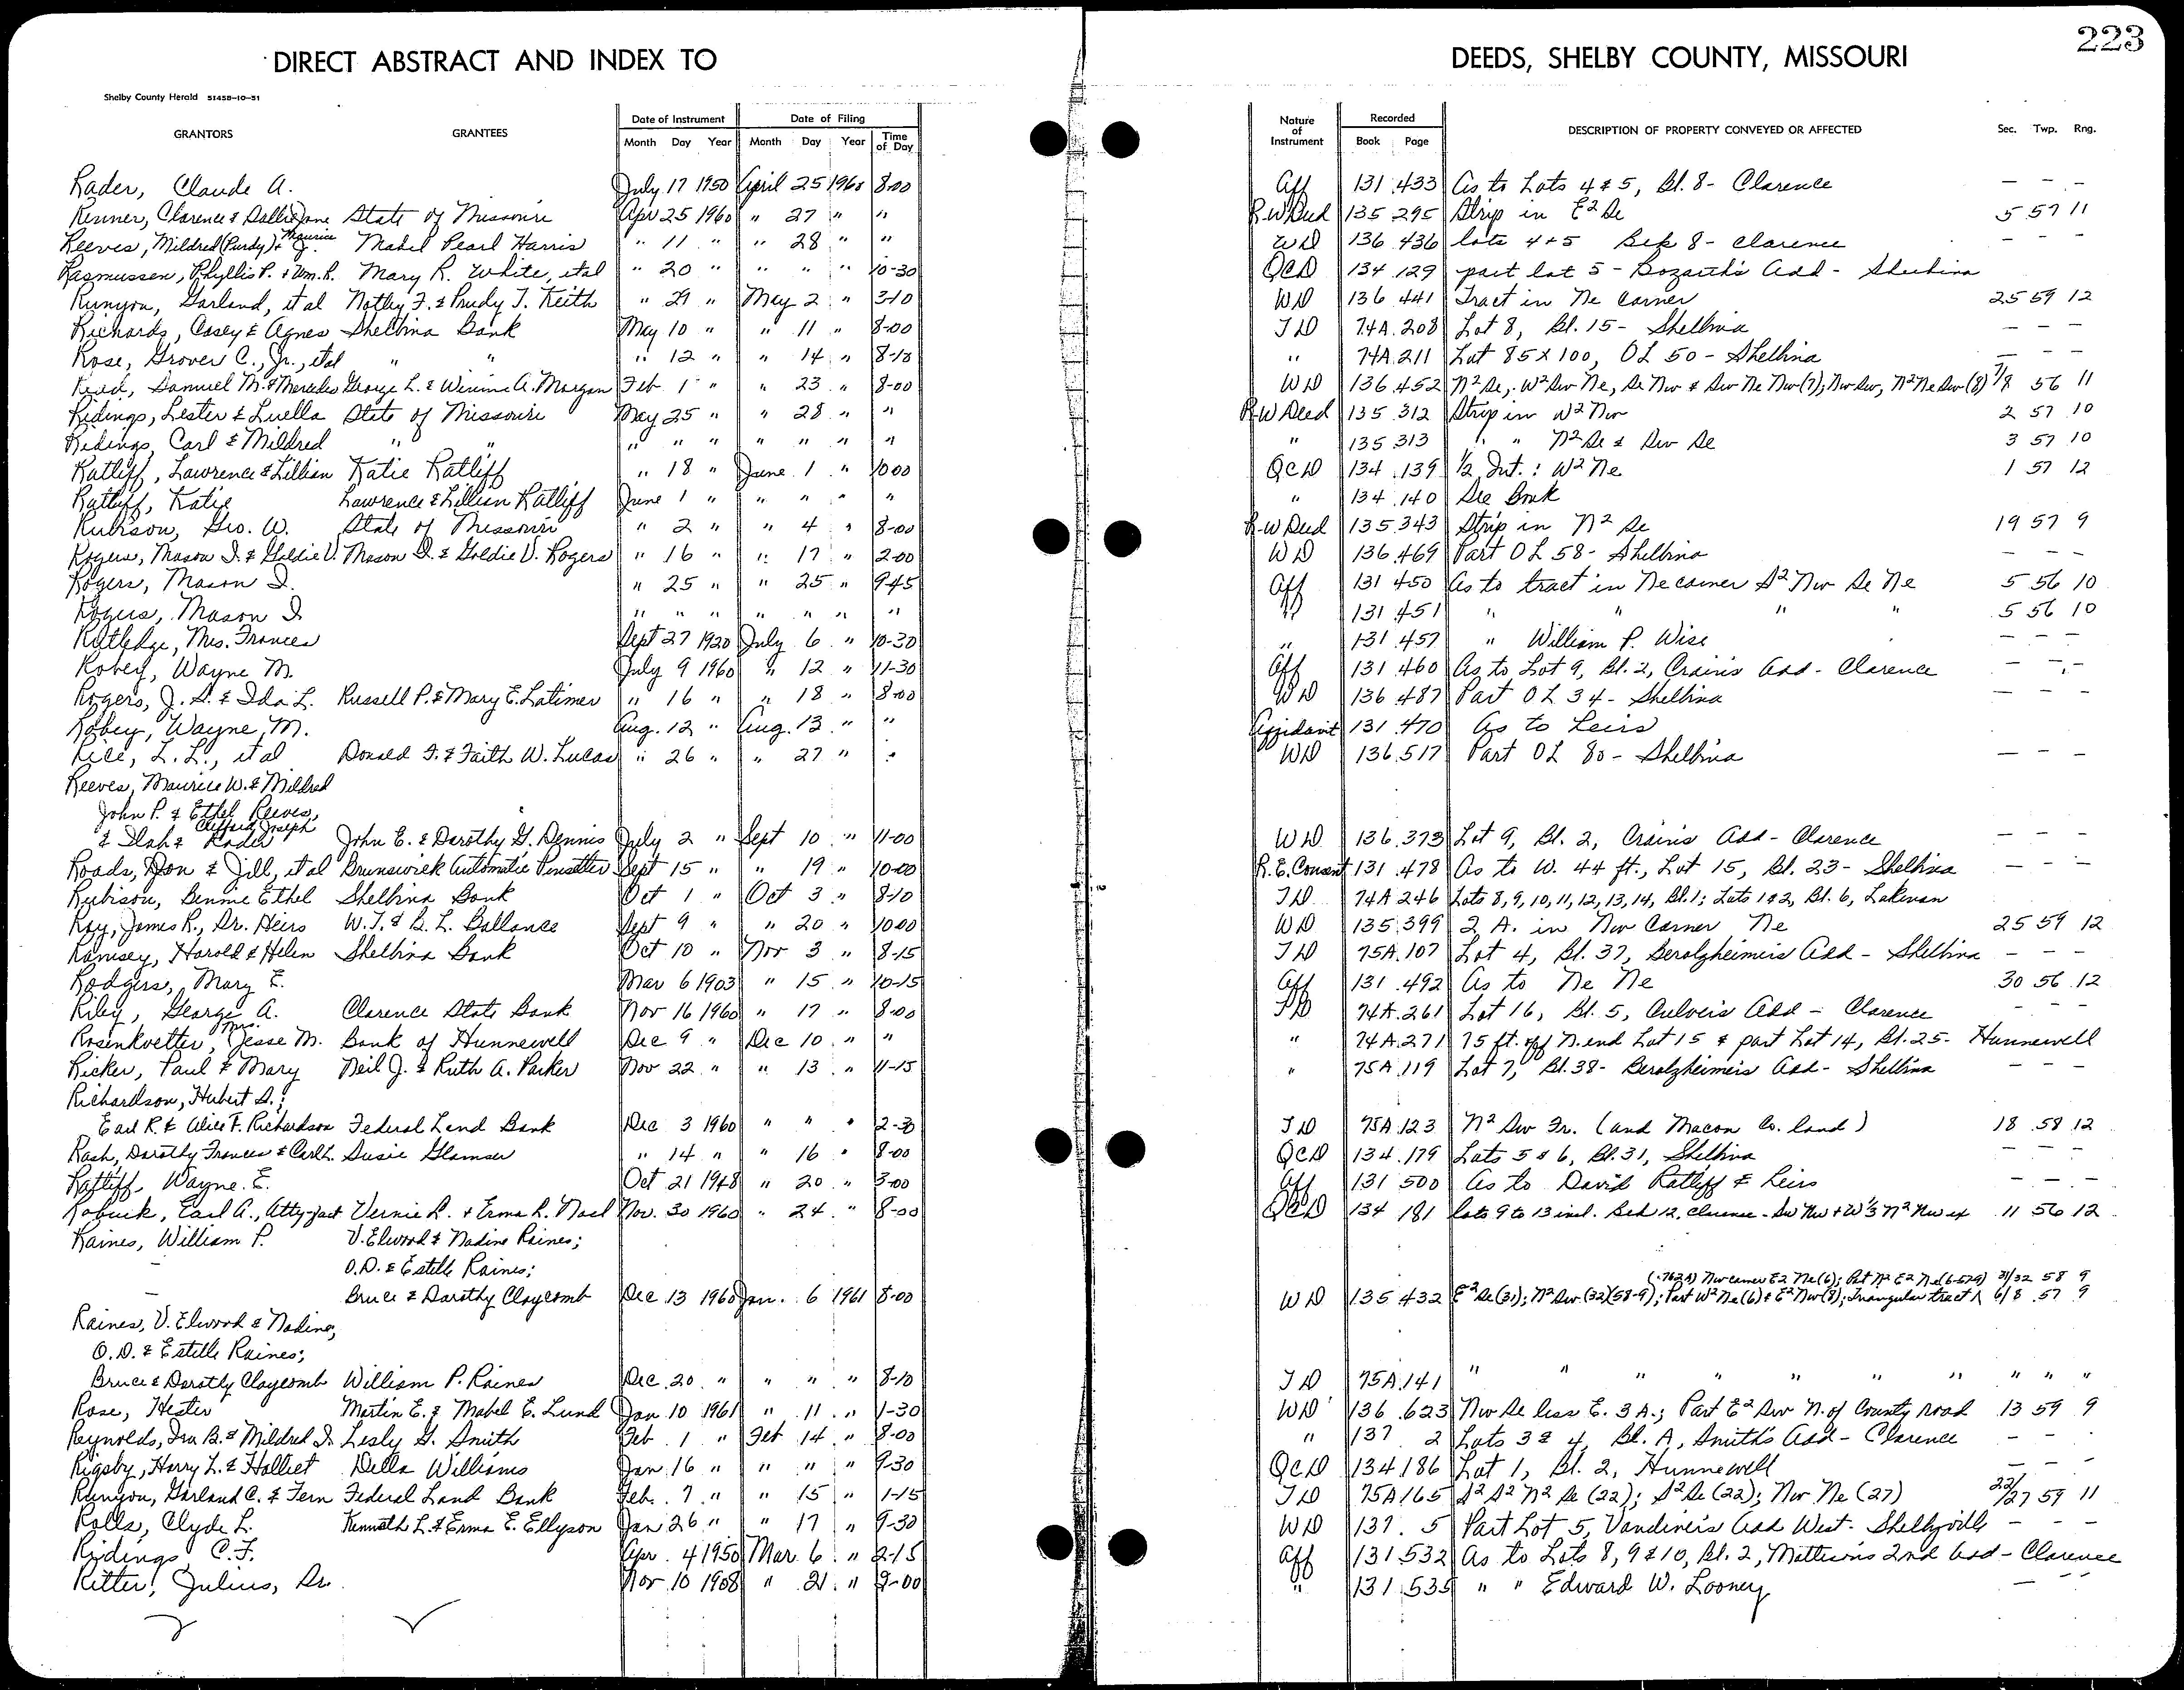 223
DIRECT ABSTRACT AND INDEX TO DEEDS, SHELBY COUNTY, MISSOURI
Shelby County Herald 51458-10-51
GRANTORS GRANTEES Date of Instrument Date of Filing Nature of Instrument Recorded DESCRIPTION OF PROPERTY CONVEYED OR AFFECTED Sec. Twp. Rng.
Month Day Year Month Day Year Time of Day Book Page
Rader, Claude A. July 17 1950 April 25 1960 8-00 Aff 131 433 As to Lots 4 & 5, Bl. 8 - Clarence — — —
Renner, Clarence & Sallie Jane State of Missouri Apr 25 1960 " 27 " " R-W Deed 135 295 Strip in E² Se 5 57 11
Reeves, Mildred (Purdy) & Maurice J. Mabel Pearl Harris " 11 " " 28 " " WD 136 436 lots 4+5 Blk 8 - Clarence — — —
Rasmussen, Phyllis P. & Wm. R. Mary R. White, etal " 20 " " " " 10-30 QCD 134 129 part lot 5 - Bozarth's Add - Shelbina
Runyon, Garland, et al Notley F. & Prudy T. Keith " 29 " May 2 " 3-10 WD 136 441 Tract in Ne corner 25 59 12
Richards, Casey & Agnes Shelbina Bank May 10 " " 11 " 8-00 TD 74A 208 Lot 8, Bl. 15 - Shelbina — — —
Rose, Grover C., Jr., etal " " " 12 " " 14 " 8-10 " 74A 211 Lot 85 X 100, OL 50 - Shelbina — — —
Read, Samuel M. & Mercedes George L. & Winnie A. Morgan Feb 1 " " 23 " 8-00 WD 136 452 N² Se, W² Sw Ne, Se Nw & Sw Ne Nw (7); Nw Sw, N² Ne Sw (8) 7/8 56 11
Ridings, Lester & Luella State of Missouri May 25 " " 28 " " R-W Deed 135 312 Strip in W² Nw 2 57 10
Ridings, Carl & Mildred " " " " " " " " " " 135 313 " " N² Se & Sw Se 3 57 10
Ratliff, Lawrence & Lillian Katie Ratliff " 18 " June 1 " 10-00 QCD 134 139 ½ Int.: W² Ne 1 57 12
Ratliff, Katie Lawrence & Lillian Ratliff June 1 " " " " " " 134 140 See Book
Rubison, Geo. W. State of Missouri " 2 " " 4 " 8-00 R-W Deed 135 343 Strip in N² Se 19 57 9
Rogers, Mason I. & Goldie V. Mason I. & Goldie V. Rogers " 16 " " 17 " 2-00 WD 136 469 Part OL 58 - Shelbina — — —
Rogers, Mason I. " 25 " " 25 " 9-45 Aff 131 450 As to tract in Ne corner S² Nw Se Ne 5 56 10
Rogers, Mason I. " " " " " " " " 131 451 " " " " 5 56 10
Rutledge, Mrs. Frances Sept 27 1920 July 6 " 10-30 " 131 457 " William P. Wise — — —
Robey, Wayne M. July 9 1960 " 12 " 11-30 Aff 131 460 As to Lot 9, Bl. 2, Crain's Add - Clarence — — —
Rogers, J. S. & Ida L. Russell P. & Mary E. Latimer " 16 " " 18 " 8-00 WD 136 487 Part OL 34 - Shelbina — — —
Robey, Wayne M. Aug. 12 " Aug. 13 " " Affidavit 131 470 As to Heirs
Rice, L. L., et al Donald F. & Faith W. Lucas " 26 " " 27 " " WD 136 517 Part OL 80 - Shelbina — — —
Reeves, Maurice W. & Mildred
John P. & Ethel Reeves,
Clifford Joseph
& Ilah & Rader John E. & Dorothy G. Dennis July 2 " Sept 10 " 11-00 WD 136 373 Lot 9, Bl. 2, Crain's Add - Clarence — — —
Roads, Don & Jill, et al Brunswick Automatic Pinsetter Sept 15 " " 19 " 10-00 R.E. Consent 131 478 As to W. 44 ft., Lot 15, Bl. 23 - Shelbina — — —
Rubison, Bennie Ethel Shelbina Bank Oct 1 " Oct 3 " 8-10 TD 74A 246 Lots 8, 9, 10, 11, 12, 13, 14, Bl. 1; Lots 1 & 2, Bl. 6, Lakenan
Roy, James R., Dr. Heirs W. T. & B. L. Ballance Sept 9 " " 20 " 10-00 WD 135 399 2 A. in Nw Corner Ne 25 59 12
Ramsey, Harold & Helen Shelbina Bank Oct 10 " Nov 3 " 8-15 TD 75A 107 Lot 4, Bl. 37, Berolzheimer's Add - Shelbina — — —
Rodgers, Mary E. Mar 6 1903 " 15 " 10-15 Aff 131 492 As to Ne Ne 30 56 12
Riley, George A. Clarence State Bank Nov 16 1960 " 17 " 8-00 TD 74A 261 Lot 16, Bl. 5, Culver's Add - Clarence — — —
Rosenkoetter, Mrs. Jesse M. Bank of Hunnewell Dec 9 " Dec 10 " " " 74A 271 75 ft. off N. end Lot 15 & part Lot 14, Bl. 25 - Hunnewell
Ricker, Paul & Mary Neil J. & Ruth A. Parker Nov 22 " " 13 " 11-15 " 75A 119 Lot 7, Bl. 38 - Berolzheimer's Add - Shelbina — — —
Richardson, Hubert S.;
Earl R. & Alice F. Richardson Federal Land Bank Dec 3 1960 " " " 2-30 TD 75A 123 N² Sw Fr. (and Macon Co. land) 18 58 12
Rash, Dorothy Frances & Carl L. Susie Glamser " 14 " " 16 " 8-00 QCD 134 179 Lots 5 & 6, Bl. 31, Shelbina — — —
Ratliff, Wayne E. Oct 21 1948 " 20 " 3-00 Aff 131 500 As to David Ratliff & Heirs — — —
Robuck, Earl A., Atty-fact Vernie R. & Erma R. Noel Nov. 30 1960 " 24 " 8-00 QCD 134 181 lots 9 to 13 incl. Blk 12, Clarence - Sw Nw + W⅓ N² Nw ex 11 56 12
Raines, William P. V. Elwood & Nadine Raines;
O.D. & Estelle Raines;
(.762A) Nw corner E2 Ne (6); Part N² E² Ne (6-57-9) 31/32 58 9
Bruce & Dorothy Claycomb Dec 13 1960 Jan. 6 1961 8-00 WD 135 432 E² Se (31); N² Sw (32) (58-9); Part W² Ne (6) & E² Nw (8); Triangular tract 6/8 57 9
Raines, V. Elwood & Nadine;
O.D. & Estelle Raines;
Bruce & Dorothy Claycomb William P. Raines Dec. 20 " " " " 8-10 TD 75A 141 " " " " " " " " " "
Rose, Hester Martin E. & Mabel E. Lund Jan 10 1961 " 11 " 1-30 WD 136 623 Nw Se less E. 3 A.; Part E² Sw N. of County road 13 59 9
Reynolds, Ira B. & Mildred I. Lesly G. Smith Feb 1 " Feb 14 " 8-00 " 137 2 Lots 3 & 4, Bl. A, Smith's Add - Clarence — —
Rigsby, Harry L. & Halliet Della Williams Jan 16 " " " " 9-30 QCD 134 186 Lot 1, Bl. 2, Hunnewell — — —
Runyon, Garland C. & Fern Federal Land Bank Feb. 7 " " 15 " 1-15 TD 75A 165 S² S² N² Se (22); S² Se (22); Nw Ne (27) 22/27 59 11
Rolls, Clyde L. Kenneth L. & Erma E. Ellyson Jan 26 " " 17 " 9-30 WD 137 5 Part Lot 5, Vandiver's Add West - Shelbyville — — —
Ridings, C. F. Apr. 4 1950 Mar. 6 " 2-15 Aff 131 532 As to Lots 8, 9 & 10, Bl. 2, Mathew's 2nd Add - Clarence
Ritter, Julius, Dr. Nov 10 1908 " 21 " 9-00 " 131 535 " " Edward W. Looney — — —